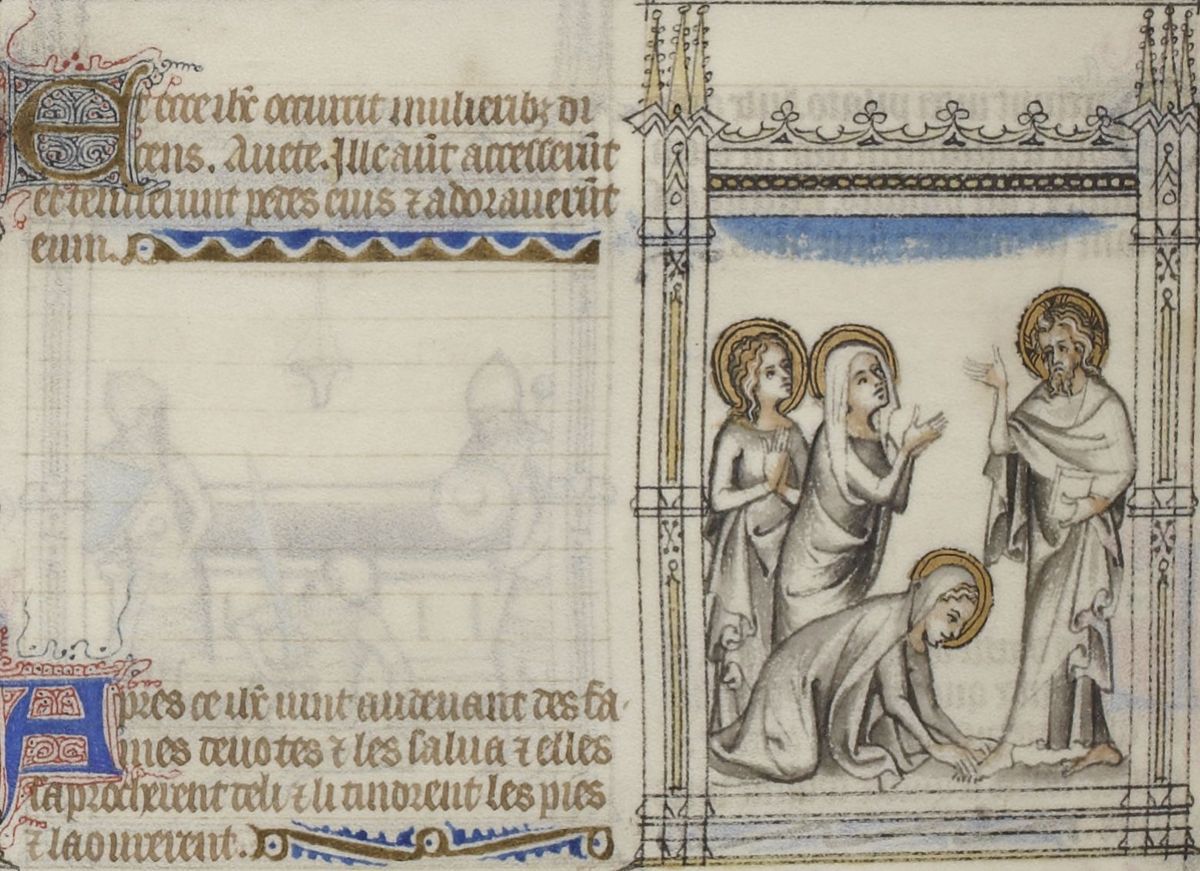 Et ecce ihc occurrit mulieribꝫ di
cens. Auete. Ille aut̄ accesserūt
et tenuerunt pedes eius ⁊ adorauerūt
eum.
Apres ce ihc uint audeuant des fa
mes deuotes ⁊ les salua ⁊ elles
saprochierent de li ⁊ li tindrent les pies
⁊ laourerent.